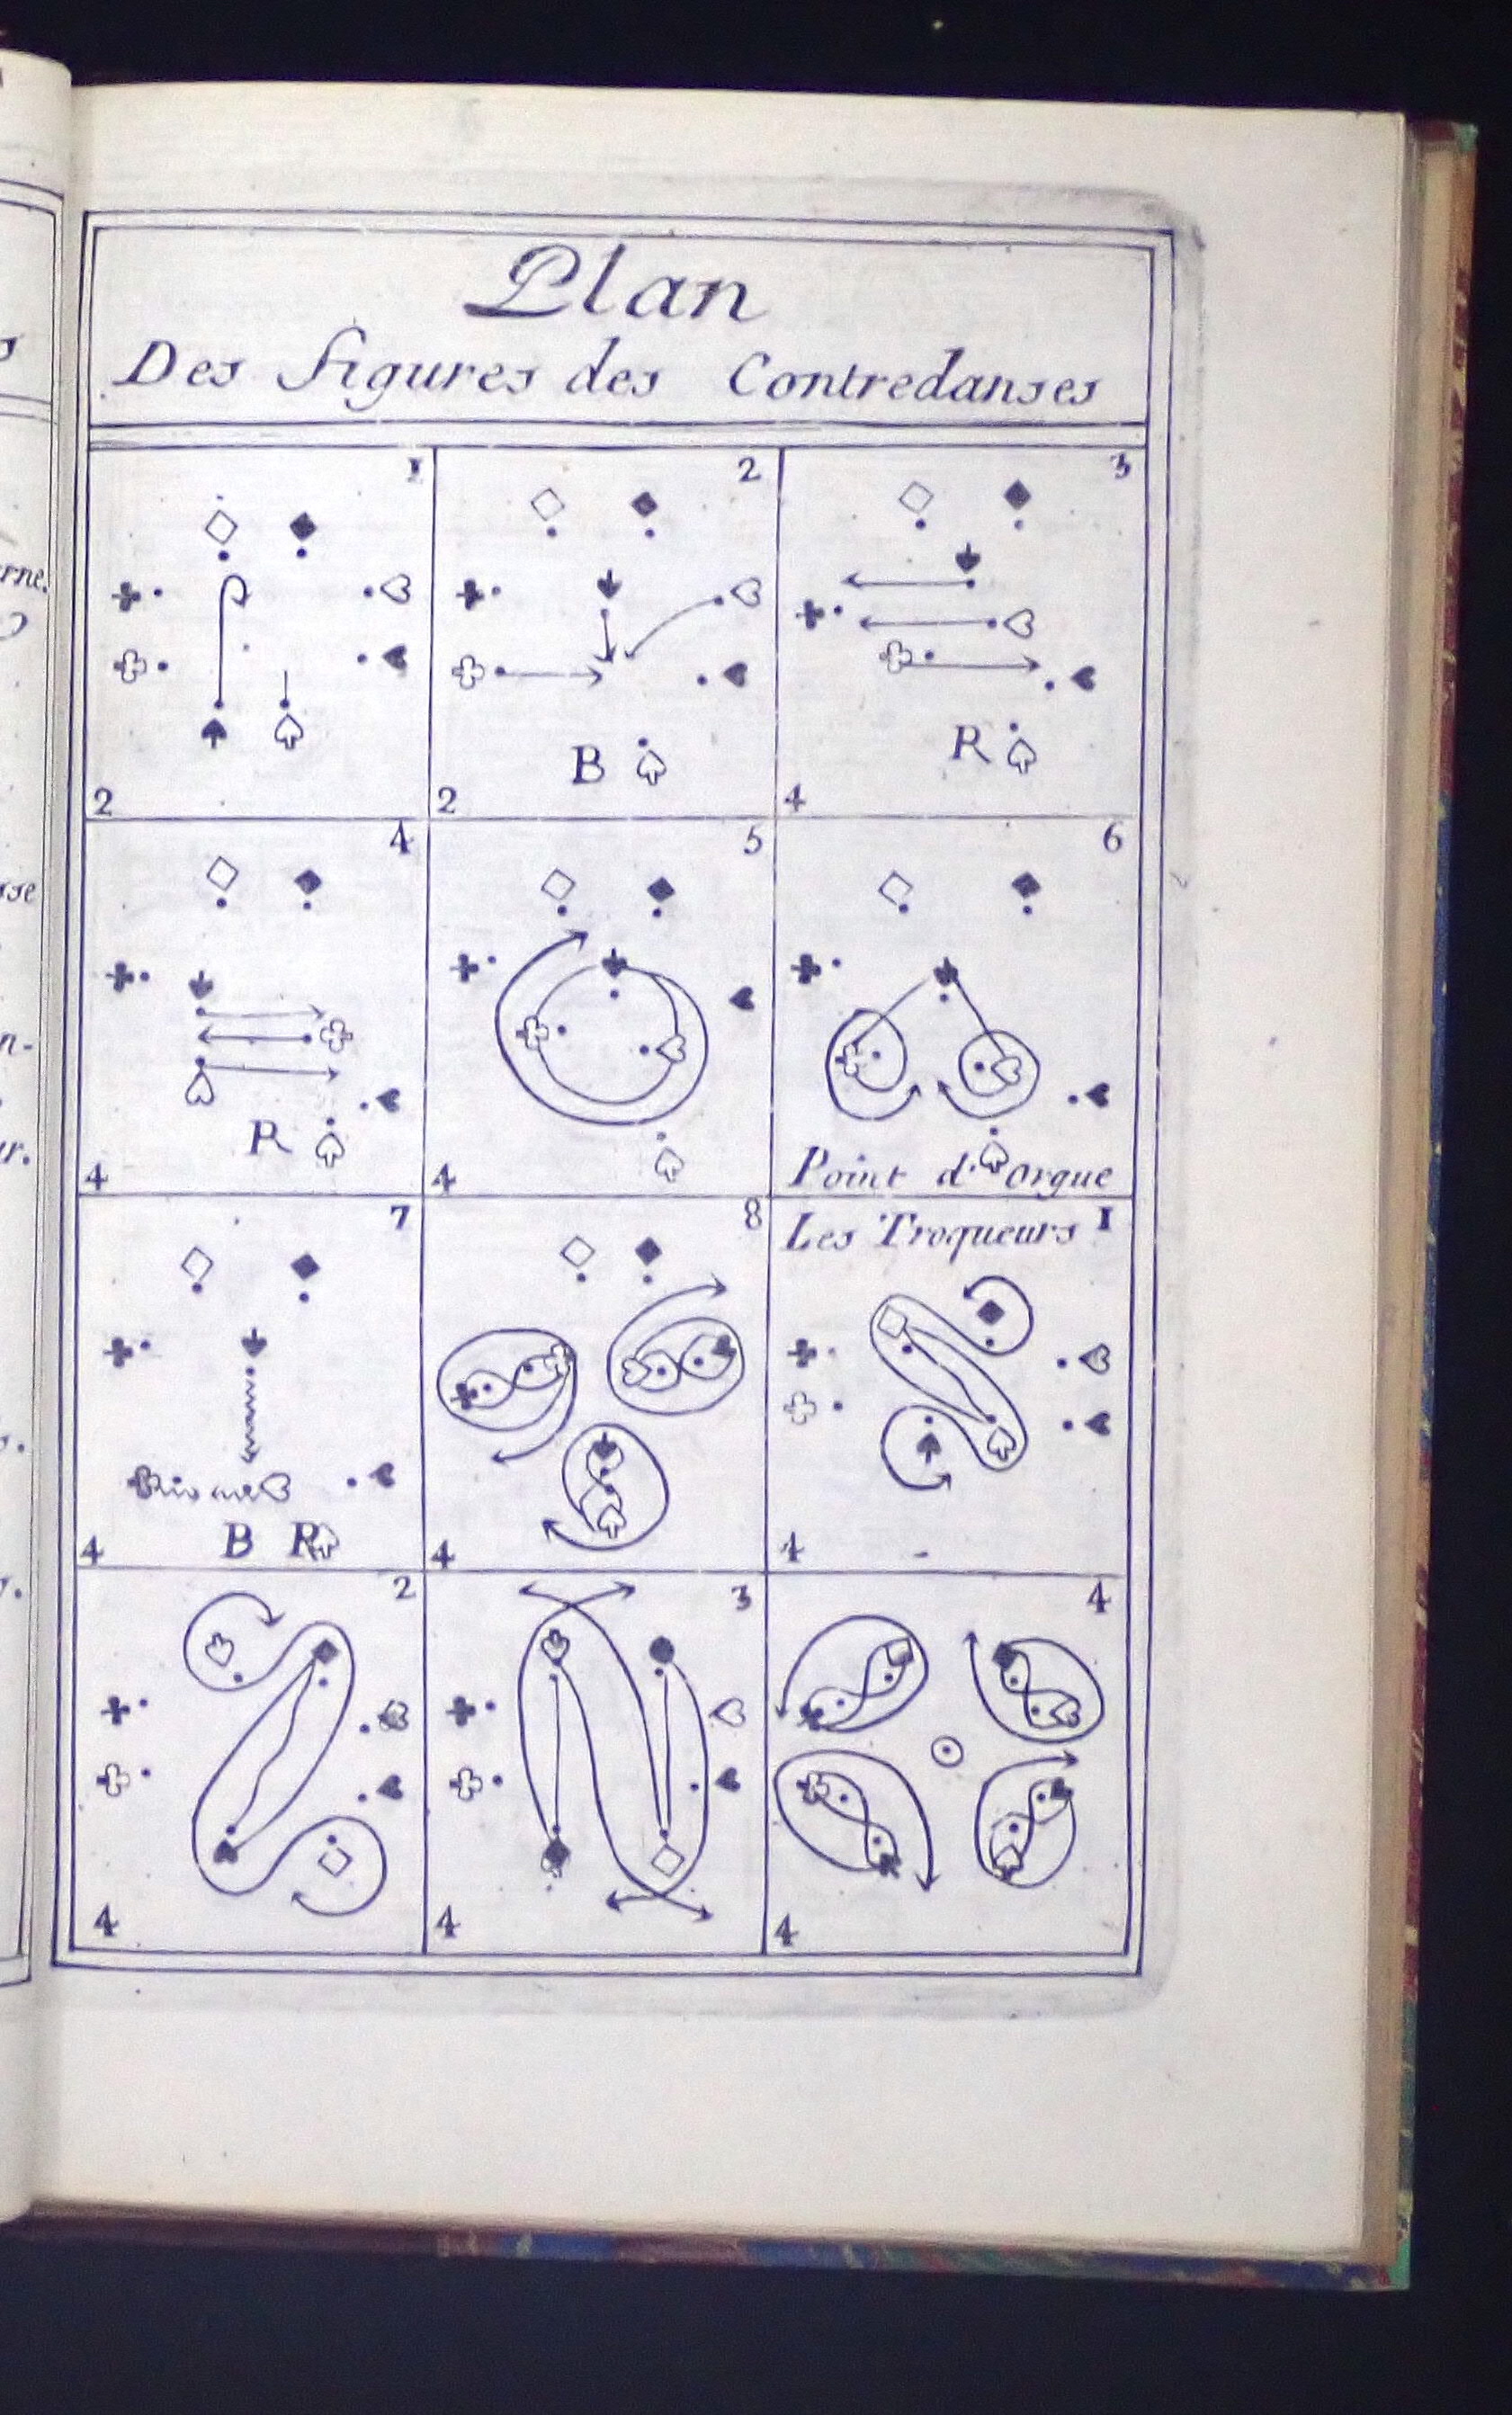 Plan
Des figures des Contredanses
1
2
3
B
R
2
2
4
4
5
6
R
4
4
Point d'orgue
7
8
Les Troqueurs 1
B R
4
4
4
2
3
4
4
4
4
erne.
sse
n-
ur.